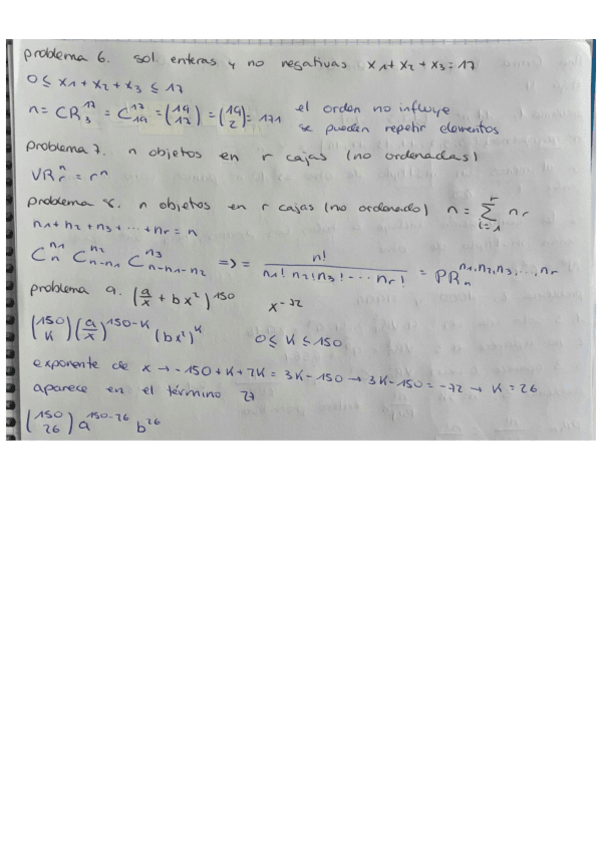 problema 6. sol. enteras y no negativas x1 + x2 + x3 = 17
0 ≤ x1 + x2 + x3 ≤ 17
n = CR_3^17 = C_19^17 = (19 17) = (19 2) = 171 el orden no influye
se pueden repetir elementos
problema 7. n objetos en r cajas (no ordenadas)
VR_r^n = r^n
problema 8. n objetos en r cajas (no ordenado) n = Σ_{i=1}^{r} nr
n1 + n2 + n3 + ... + nr = n
C_n^{n1} C_{n-n1}^{n2} C_{n-n1-n2}^{n3} => = n! / (n1! n2! n3! ... nr!) = PR_n^{n1, n2, n3, ..., nr}
problema 9. (a/x + bx²)^150 x^-72
(150 K) (a/x)^{150-K} (bx²)^K 0 ≤ K ≤ 150
exponente de x → -150 + K + 2K = 3K - 150 → 3K - 150 = -72 → K = 26
aparece en el término 27
(150 26) a^{150-26} b^26